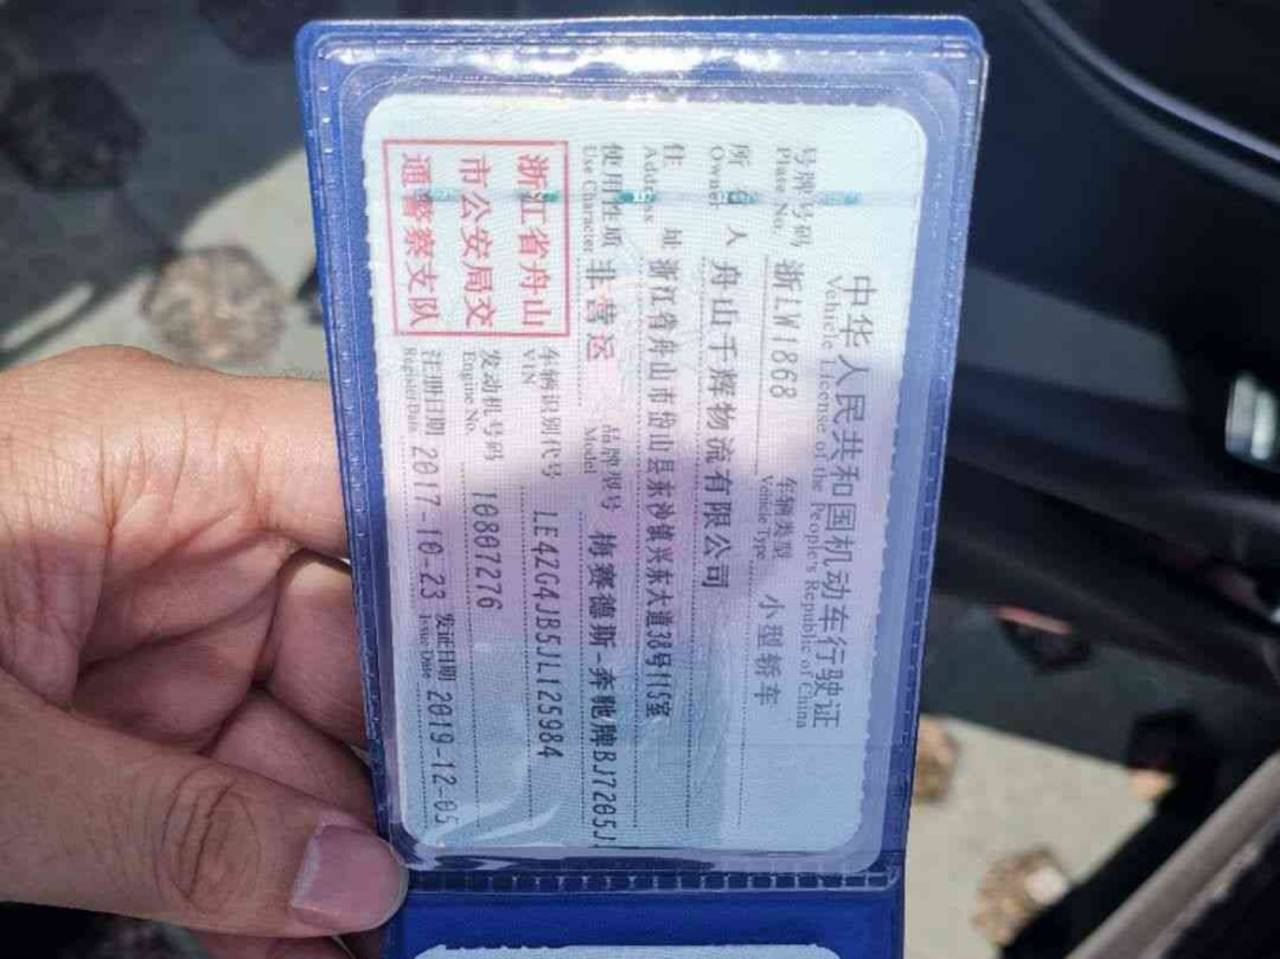 中华人民共和国机动车行驶证
Vehicle License of the People's Republic of China
号牌号码 浙LW1868 车辆类型 小型轿车
Plate No. Vehicle Type
所有人 舟山千辉物流有限公司
Owner
住址 浙江省舟山市岱山县东沙镇兴东大道38号115室
Address
使用性质 非营运 品牌型号 梅赛德斯-奔驰牌BJ7205J
Use Character Model
浙江省舟山
市公安局交
通警察支队
车辆识别代号 LE42G4JB5JL125984
VIN
发动机号码 10807276
Engine No.
注册日期 2017-10-23 发证日期 2019-12-05
Register Date Issue Date